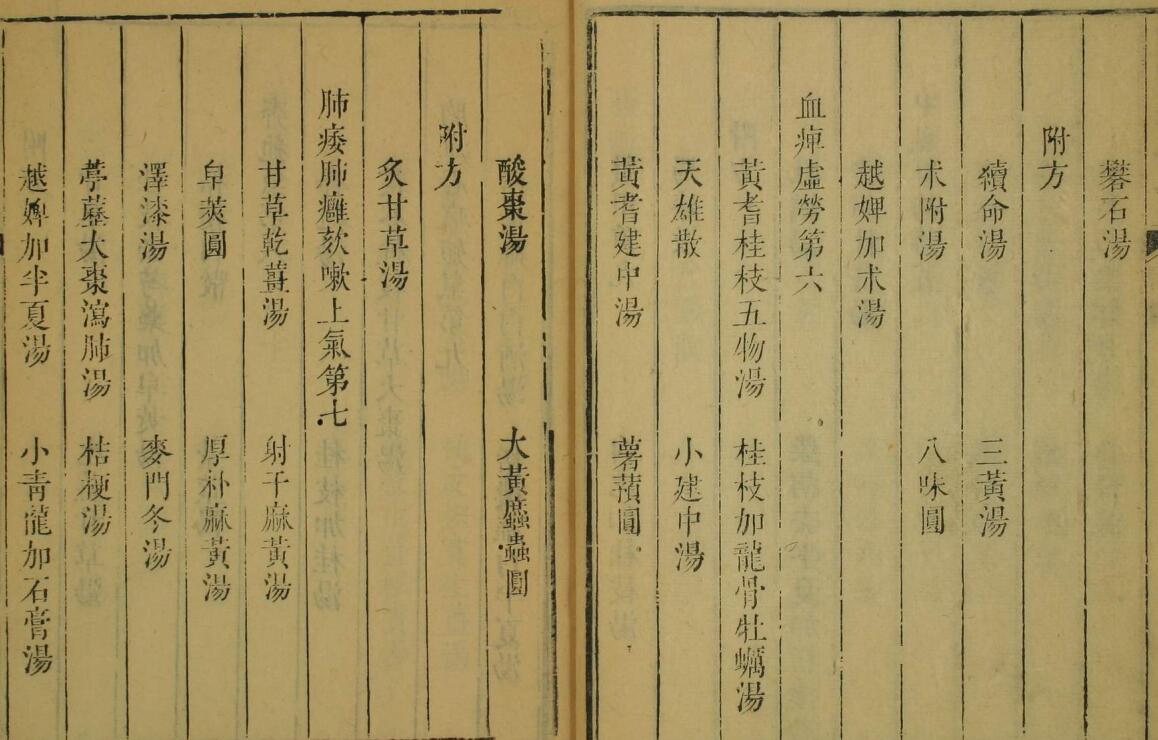 礬石湯
附方
續命湯 三黃湯
朮附湯 八味圓
越婢加朮湯
血痺虛勞第六
黃耆桂枝五物湯 桂枝加龍骨牡蠣湯
天雄散 小建中湯
黃耆建中湯 薯蕷圓
酸棗湯 大黃䗪蟲圓
附方
炙甘草湯
肺痿肺癰欬嗽上氣第七
甘草乾薑湯 射干麻黃湯
皁莢圓 厚朴麻黃湯
澤漆湯 麥門冬湯
葶藶大棗瀉肺湯 桔梗湯
越婢加半夏湯 小青龍加石膏湯